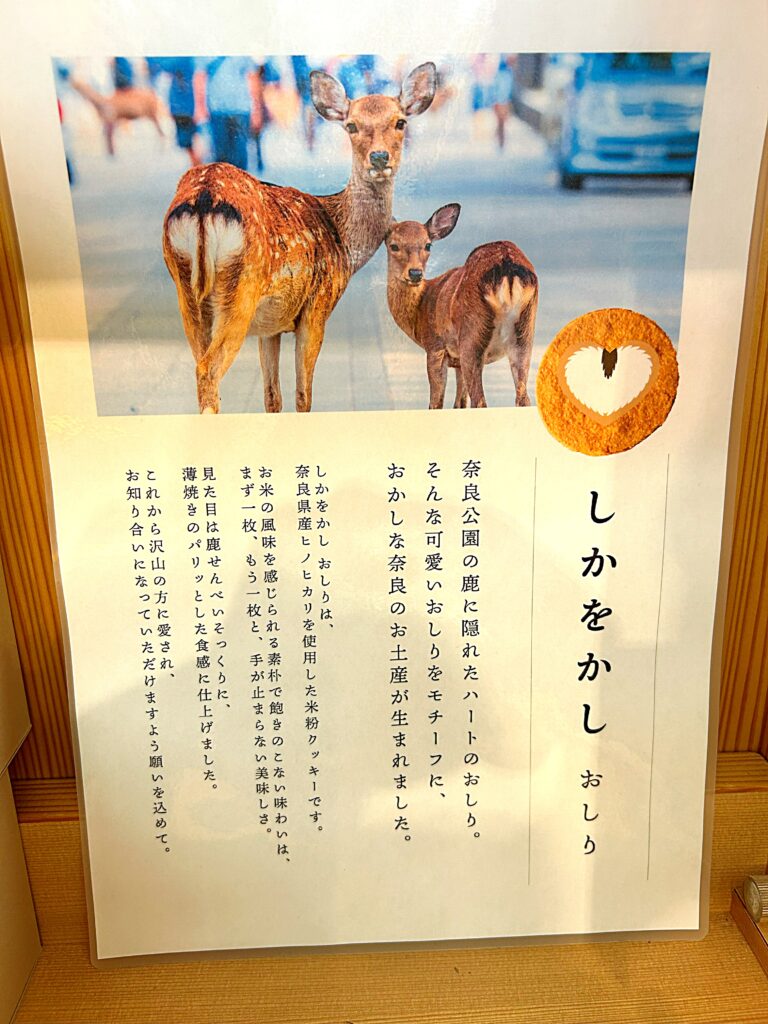 しかをかし おしり
奈良公園の鹿に隠れたハートのおしり。
そんな可愛いおしりをモチーフに、
おかしな奈良のお土産が生まれました。
しかをかし おしりは、
奈良県産ヒノヒカリを使用した米粉クッキーです。
お米の風味を感じられる素朴で飽きのこない味わいは、
まず一枚、もう一枚と、手が止まらない美味しさ。
見た目は鹿せんべいそっくりに、
薄焼きのパリッとした食感に仕上げました。
これから沢山の方に愛され、
お知り合いになっていただけますよう願いを込めて。